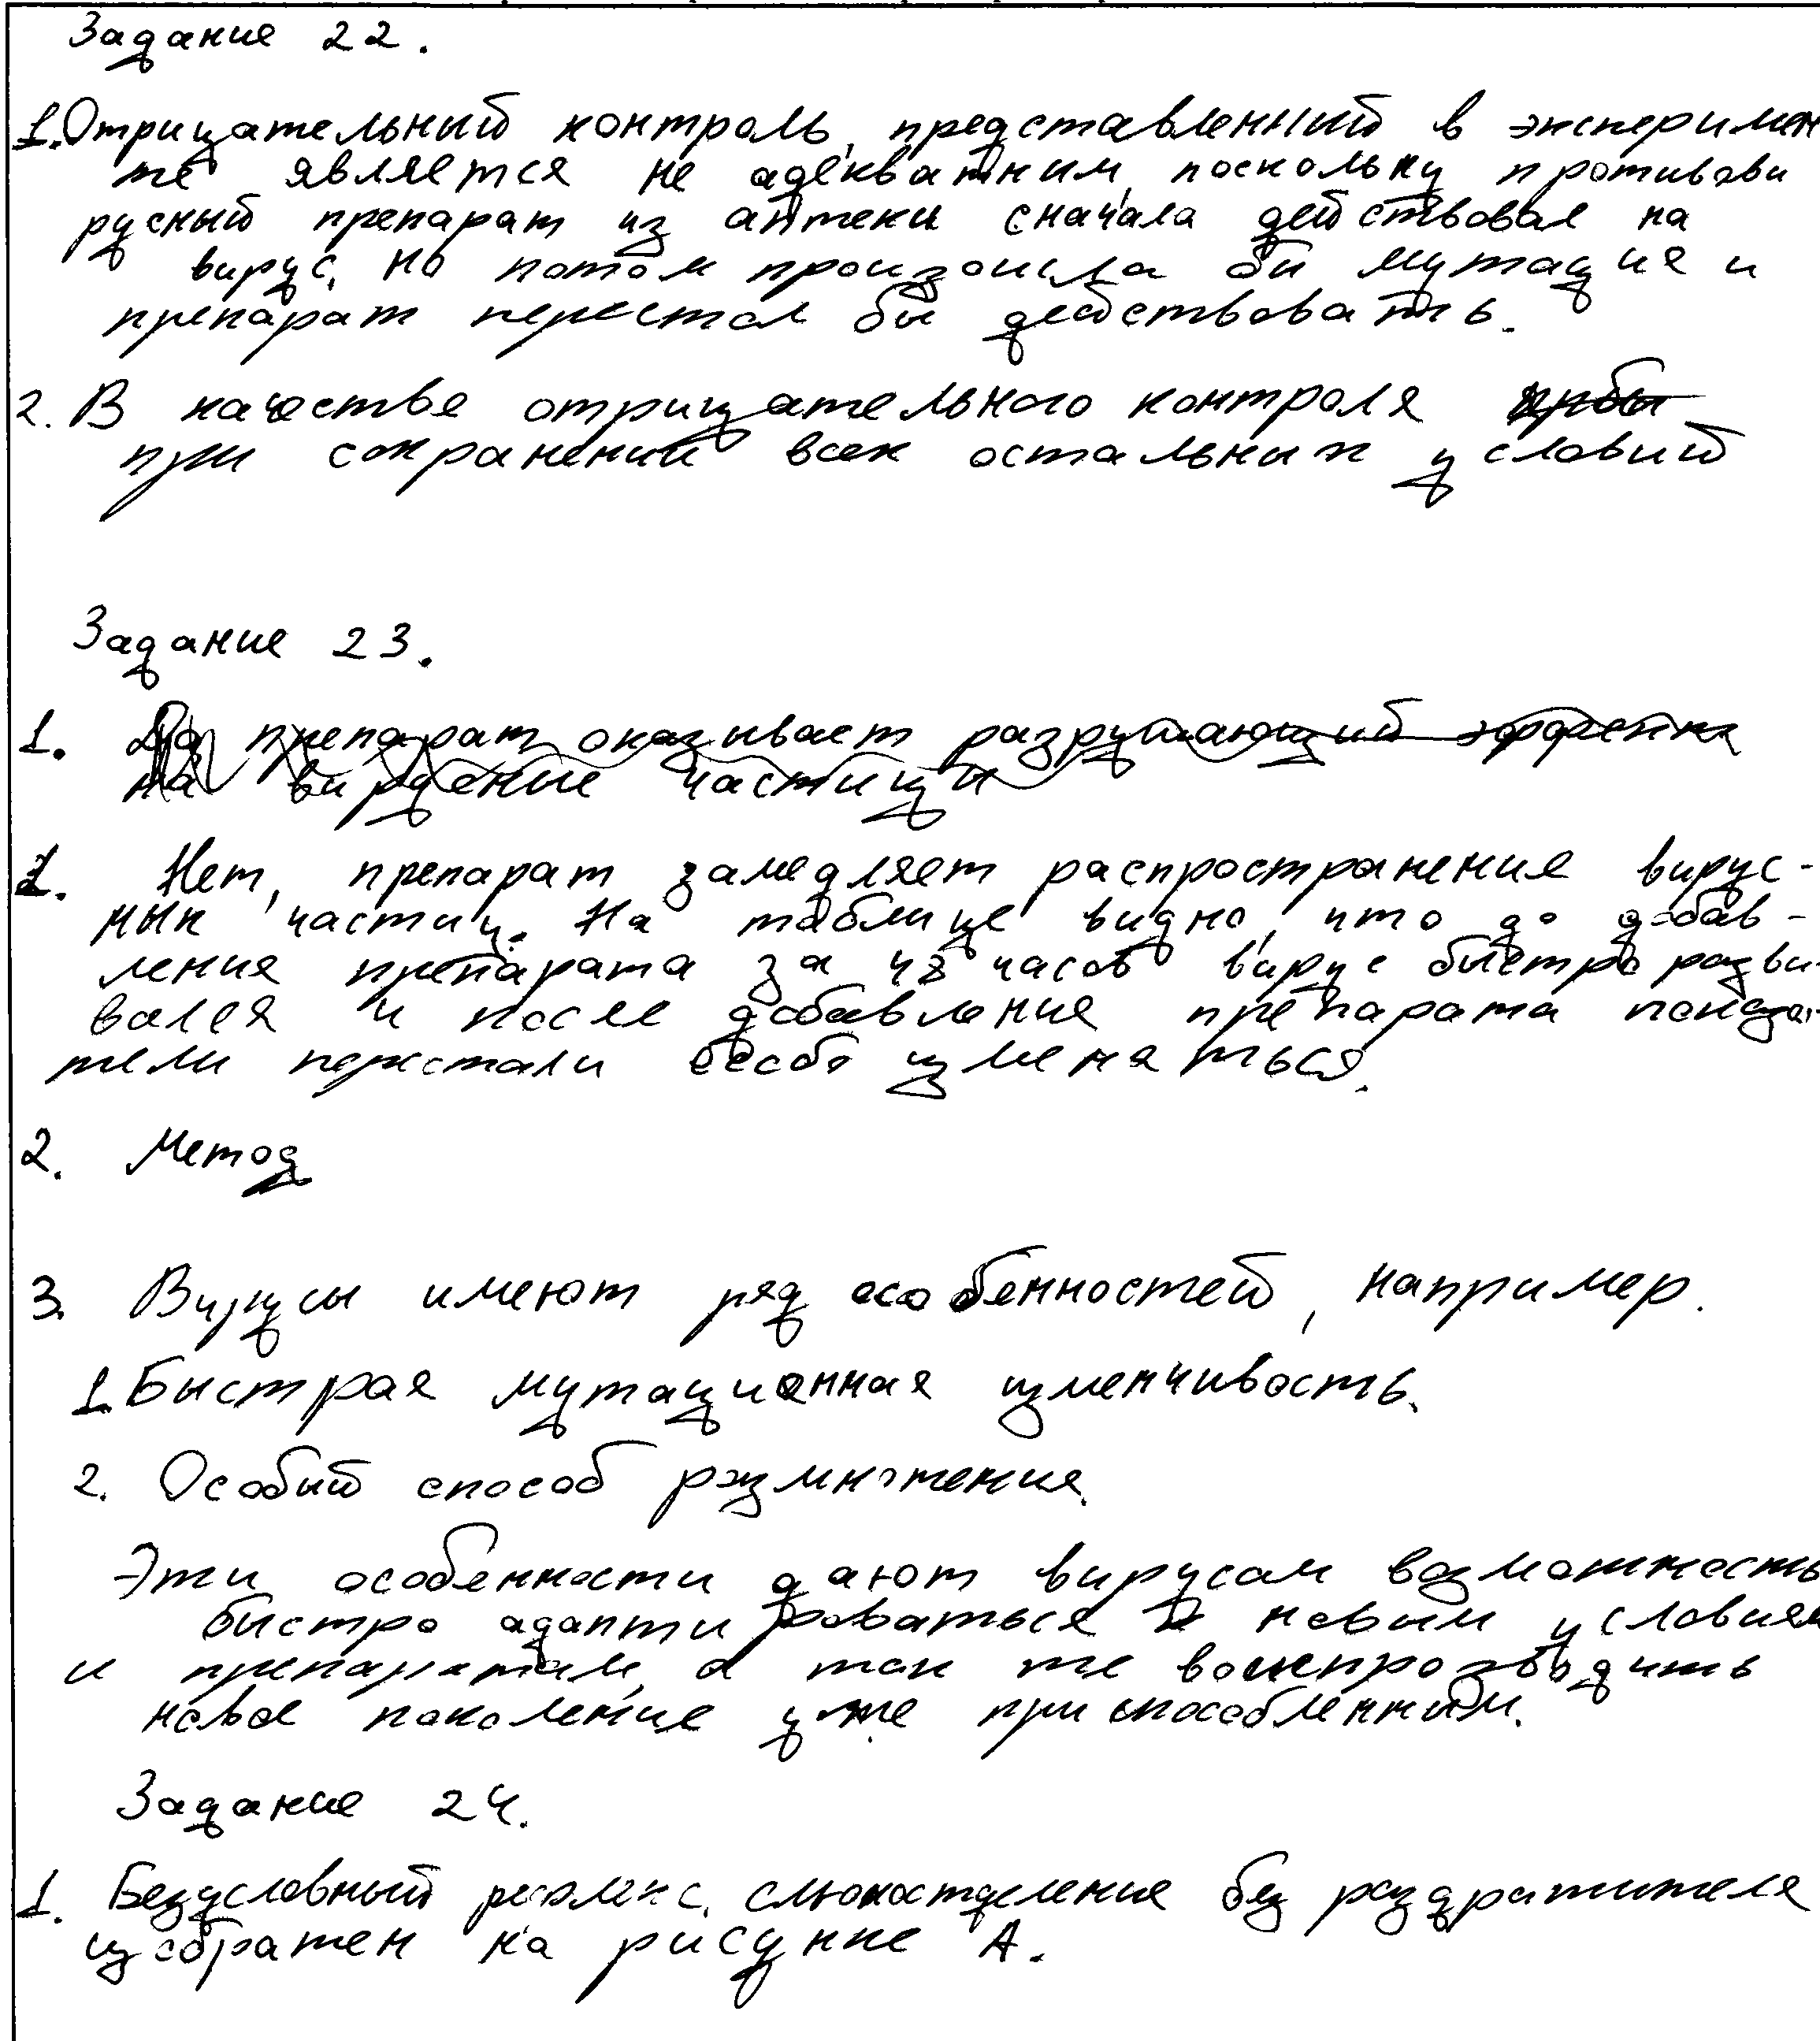 Задание 22.
1. Отрицательный контроль, представленный в эксперимен
те является не адекватным, поскольку противови
русный препарат из аптеки сначала действовал на
вирус, но потом произошла бы мутация и
препарат перестал бы действовать.
2. В качестве отрицательного контроля
при сохранении всех остальных условий
Задание 23.
1. Да препарат оказывает разрушающий эффект
на вирусные частицы
1. Нет, препарат замедляет распространение вирус-
ных частиц. На таблице видно, что до добав-
ления препарата за 48 часов вирус быстро разви-
вался и после добавления препарата показа-
тели перестали особо изменяться.
2. Метод
3. Вирусы имеют ряд особенностей, например.
1. Быстрая мутационная изменчивость.
2. Особый способ размножения.
Эти особенности дают вирусам возможность
быстро адаптироваться к новым условиям
и препаратам, а так же воспроизводить
новое поколение уже приспособленным.
Задание 24.
1. Безусловный рефлекс, слюноотделение без раздражителя
изображен на рисунке А.